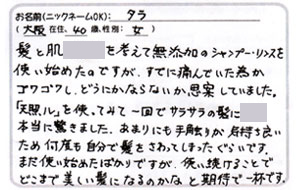 お名前(ニックネームOK): タラ
(大阪 在住、40 歳、性別: 女 )
髪と肌 を考えて無添加のシャンプー・リンスを
使い始めたのですが、すでに痛んでいた為か
ゴワゴワし、どうにかならないか思案していました。
「天照ル」を使ってみて一回でサラサラの髪に
本当に驚きました。あまりにも手触りが気持ち良い
ため何度も自分で髪をさわってしまったぐらいです。
まだ使い始めたばかりですが、使い続けることで
どこまで美しい髪になるのかな と期待で一杯です。